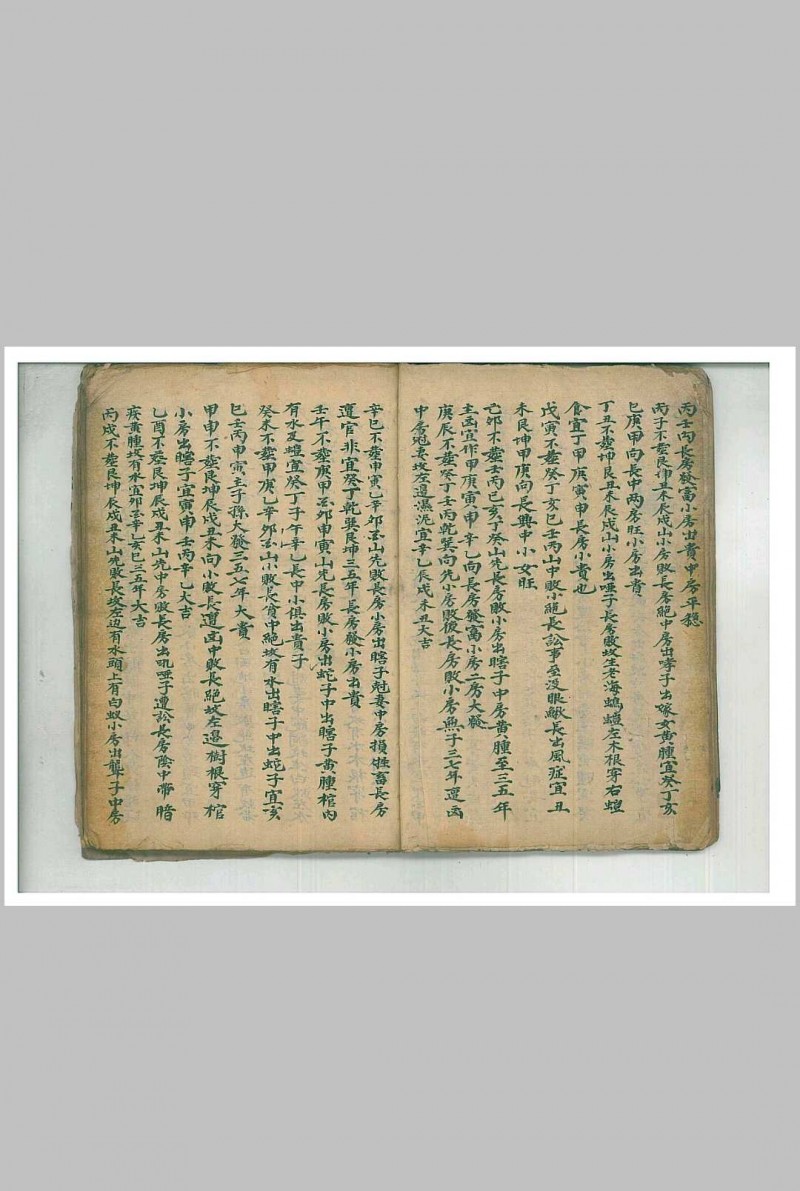 丙壬向長房發富小房出貴中房平穏
丙子不塟艮坤丑未辰戍山小房敗長房絕中房出孝子出嫁女黄腫宜癸丁亥
巳庚甲向長中两房旺小房出貴
丁丑不塟坤艮丑未辰戍山小房出啞子長房敗坟生老海螞蝗左木根穿右螘
食宜丁甲庚寅申長房小貴也
戊寅不塟癸丁亥巳壬丙山中敗小絕長訟事至没眼敵長出風症宜丑
未艮坤甲庚向長興中小女旺
己夘不塟壬丙巳亥丁癸山先長房敗小房出瞎子中房黄腫至三五年
主凶宜作甲庚寅申乙向長房發富小房二房大發
庚辰不塟癸丁壬丙乾巽向先小房敗後長房敗小房無子三七年遭凶
中房尅妻坟左邊濕泥宜辛乙辰戍未丑大吉
辛巳不塟申寅乙辛夘酉山先敗長房小房出瞎子尅妻中房損牲畜長房
遭官非宜癸丁乾巽艮坤三五年長房發小房出貴
壬午不塟庚甲酉夘申寅山先長房敗小房出蛇子中出瞎子黄腫棺內
有水及螘宜癸丁子午辛乙長中小俱出貴子
癸未不塟甲庚乙辛夘酉山小敗長貧中絕坟有水出瞎子中出蛇子宜亥
巳壬丙申寅主子孫大發三五七年大貴
甲申不塟艮坤辰戍丑未向小敗長遭凶中敗長絕坟左邉樹根穿棺
小房出瞎子宜寅申壬丙辛乙大吉
乙酉不塟艮坤辰戍丑未山先中房敗長房出吼啞子遭訟長房陰中帶暗
疾黄腫坟有水宜夘酉辛乙亥巳三五年大吉
丙戍不塟艮坤辰戍丑未山先敗長坟左边有水頭上有白蚁小房出聾子中房